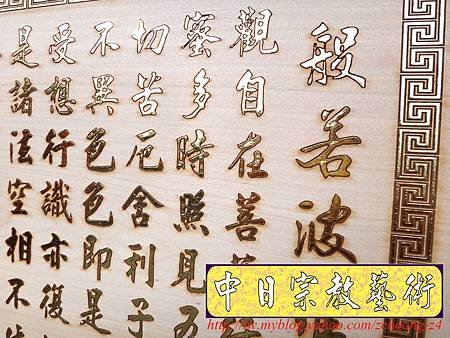 般若波
觀自在菩
蜜多時照見五
切苦厄舍利子
不異色色即是
受想行識亦復
是諸法空相不
中日宗教藝術